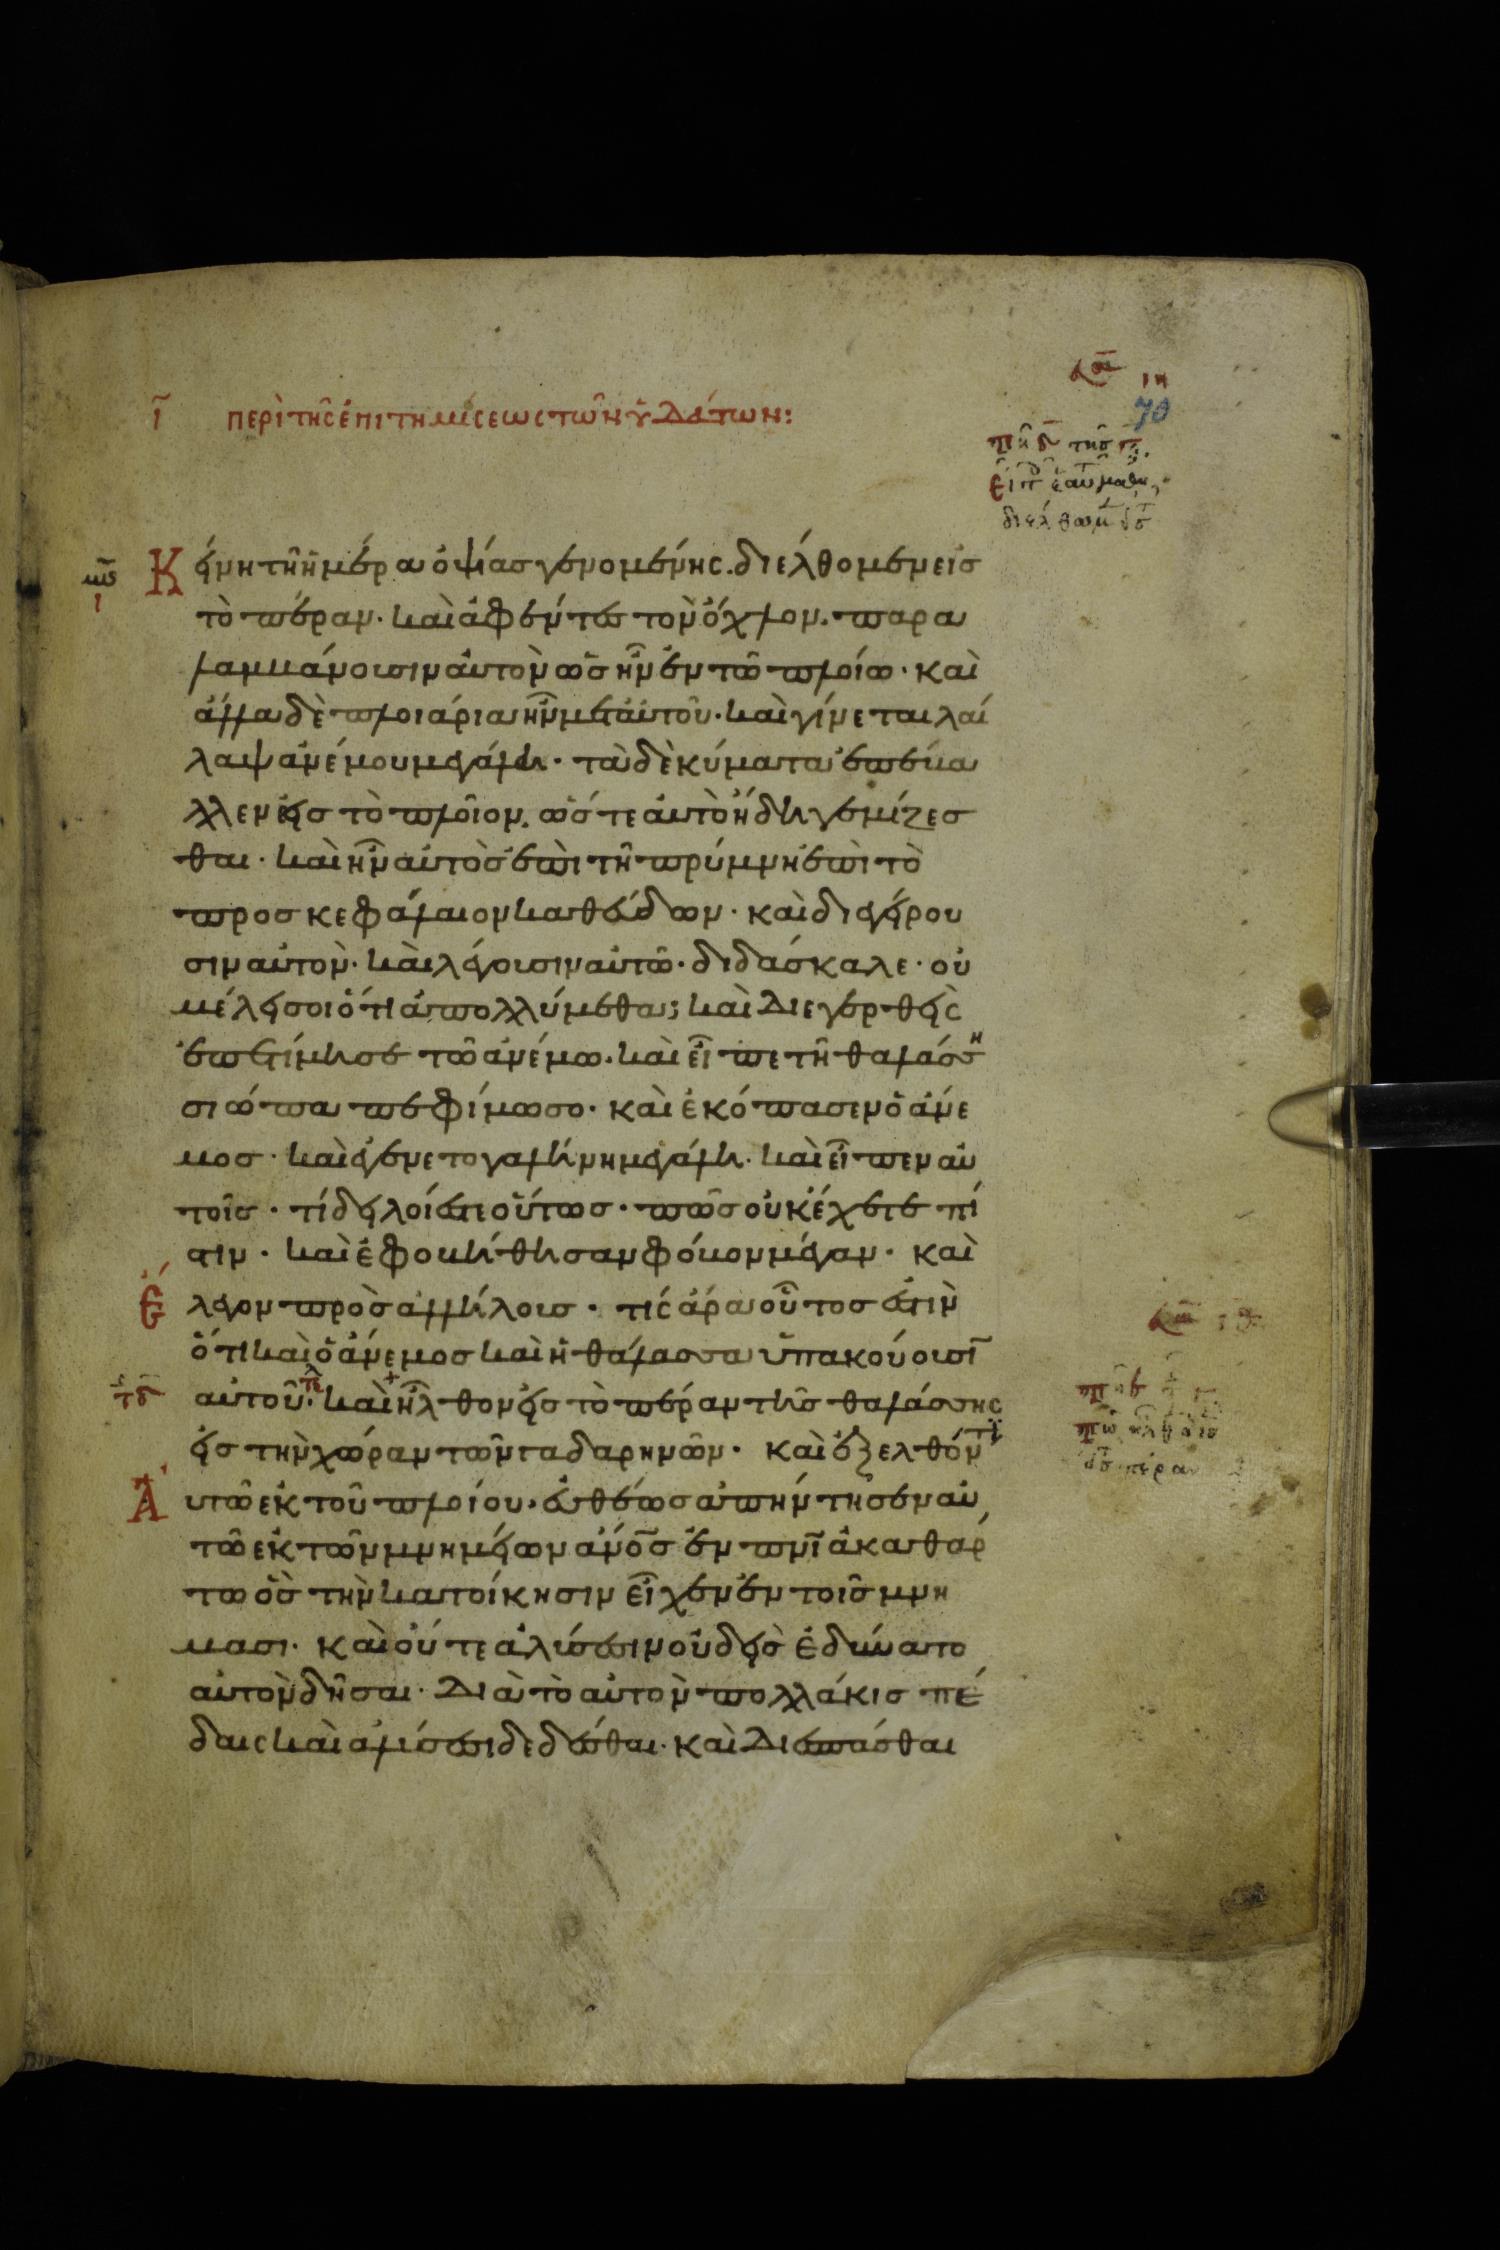 ι̅ περὶ τῆς ἐπιτημίσεως τῶν ὑδάτων:
70
Κείνη τῆ ἡμέρα ὀψίας γενομένης. διέλθομεν εἰσ
τὸ πέραν. καὶ ἀφέντες τὸν ὄχλον. παρα
λαμβάνουσιν αὐτὸν ὡς ἦν ἐν τῶ πλοίω. καὶ
ἄλλα δὲ πλοιάρια ἦν μετ αὐτοῦ. καὶ γίνεται λαῖ
λαψ ἀνέμου μεγάλη. τὰ δὲ κύματα ἐπέβα
λλεν εἰς τὸ πλοῖον. ὥστε αὐτὸ ἤδη γεμίζεσ
θαι. καὶ ἦν αὐτὸς ἐπὶ τῆ πρύμνη ἐπὶ τὸ
προσκεφάλαιον καθεύδων. καὶ διεγείρου
σιν αὐτὸν. καὶ λέγουσιν αὐτῶ. διδάσκαλε. οὐ
μέλει σοι ὅτι ἀπολλύμεθα; καὶ διεγερθεὶς
ἐπετίμησε τῶ ἀνέμω. καὶ εἶπε τῆ θαλάσση
σιώπα πεφίμωσο. καὶ ἐκόπασεν ὁ ἄνε
μος. καὶ ἐγένετο γαλήνη μεγάλη. καὶ εἶπεν αὐ
τοῖς. τί δειλοί ἐστε οὕτως. πῶς οὐκ ἔχετε πί
στιν. καὶ ἐφοβήθησαν φόβον μέγαν. καὶ
ἔλεγον πρὸς ἀλλήλους. τίς ἄρα οὗτος ἐστιν
ὅτι καὶ ὁ ἄνεμος καὶ ἡ θάλασσα ὑπακούουσῖ
αὐτοῦ. καὶ ἦλθον εἰς τὸ πέραν τῆς θαλάσσης
εἰς τὴν χώραν τῶν γαδαρηνῶν. καὶ ἐξελθόντι
Αὐτῶ ἐκ τοῦ πλοίου. εὐθέως ἀπήντησεν αὐ
τῶ ἐκ τῶν μνημείων ἄνο̅ς ἐν πνῖ ἀκαθάρ
τω ὃς τὴν κατοίκησιν εἶχεν ἐν τοῖς μνή
μασι. καὶ οὔτε ἁλύσεσιν οὐδεὶς ἐδύνατο
αὐτὸν δῆσαι. διὰ τὸ αὐτὸν πολλάκις πέ
δαις καὶ ἁλύσεσι δεδέσθαι. καὶ διεσπάσθαι